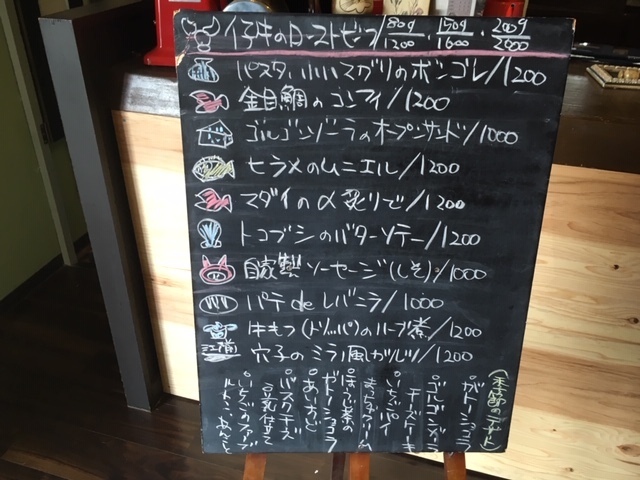 仔牛のローストビーフ 80g/1200・150g/1600・200g/2000
パスタ, 小ハマグリのボンゴレ/1200
金目鯛のコンフィ/1200
ゴルゴンゾーラのオープンサンド/1000
ヒラメのムニエル/1200
マダイの〆炙りで/1200
トコブシのバターソテー/1200
自家製ソーセージ(しそ)/1000
パテ de レバニラ/1000
牛もつ(トリッパ)のハーブ煮/1200
江戸前 穴子のミラノ風カツレツ/1200
(季節のデザート)
ガトーショコラ
ゴルゴンゾーラ
チーズケーキ
いちごパイ
まっちゃクリーム
ほうじ茶の
ガトーショコラ
バスクチーズ
豆乳仕立て